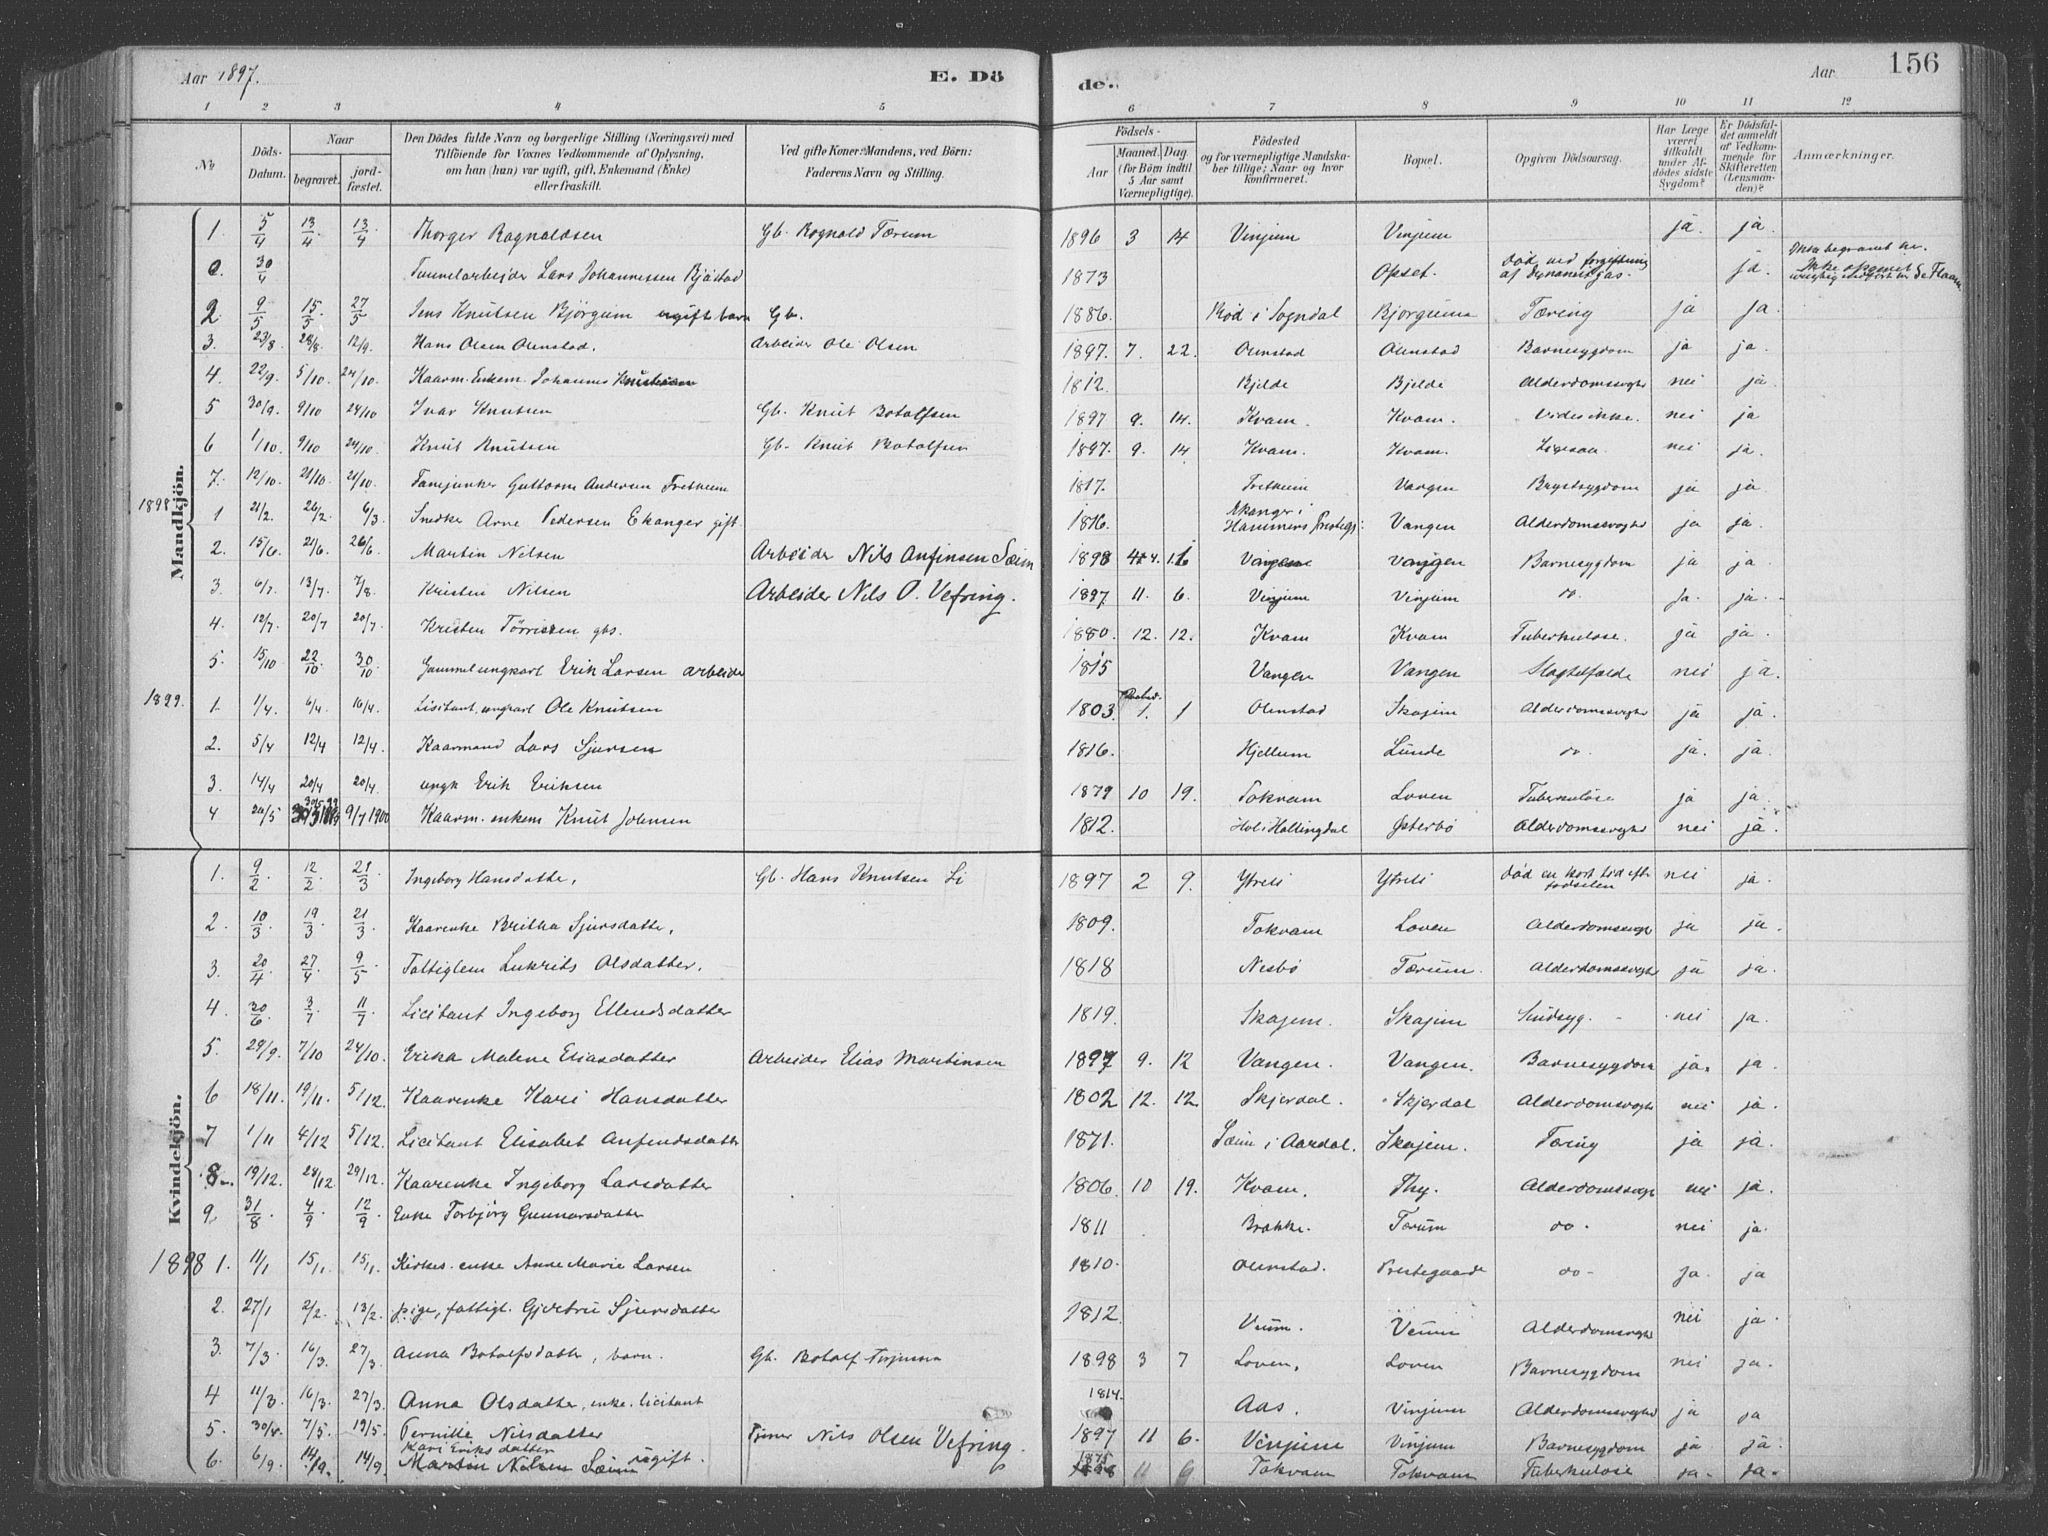 Aar 1897. E. Dö de. Aar 156
1 2 3 4 5 6 7 8 9 10 11 12
No Döds-Datum. Naar begravet. jord-fæstet. Den Dödes fulde Navn og borgerlige Stilling (Næringsvei) med Tilföiende for Voxnes Vedkommende af Oplysning, om han (hun) var ugift, gift, Enkemand (Enke) eller fraskilt. Ved gifte Koner: Mandens, ved Börn: Faderens Navn og Stilling. Födsels- Aar Maaned. Dag. (for Börn indtil 5 Aar samt Værnepligtige). Födested og for værnepligtige Mandska-ber tillige; Naar og hvor konfirmeret. Bopæl. Opgiven Dödsaarsag. Har Læge været tilkaldt under Af-dödes sidste Sygdom? Er Dödsfal-det anmeldt af Vedkom-mende for Skifteretten (Lensman-den)? Anmærkninger.
Mandkjön.
1. 5/4 13/4 13/4 Thorger Ragnaldsen Gb. Rognald Tærum 1896 3 14 Vinjum Vinjum ja. ja.
0. 30/4 Tunnelarbejder Lars Johannessen Bjåstad 1873 Opset. Død ved forgiftning af dynamitgas. ja.
2 9/5 15/5 27/5 Jens Knutsen Bjørgum ugift barn Gb. 1886. i Sogndal Bjørgum Tæring ja ja.
3. 23/8 28/8 12/9. Hans Olsen Olmstad. Arbeider Ole Olsen 1897. 7. 22. Olmstad Olmstad Barnesygdom ja ja.
4. 22/9. 5/10. 24/10. Kaarm. Enkem. Johannes Knutsen 1812. Bjelde Bjelde Alderdomssvaghd nei ja.
5 30/9. 9/10 24/10 Ivar Knutsen Gb. Knut Botolfsen 1897 9. 14. Kvam. Kvam. Vides ikke. nei ja
6 1/10. 9/10 24/10. Knut Knutsen Gb. Knut Botolfsen 1897. 9. 14 Kvam. Kvam. Ligesaa nei ja.
7. 12/10. 21/10. 21/10. Fanejunker Guttorm Andersen Fretheim 1817. Fretheim Vangen Brystsygdom ja ja.
1898
1 21/2. 26/2. 6/3. Snedke Arne Pedersen Ekanger gift. 1816. Ekanger i Hammers Prestegj: Vangen Alderdomssvaghd ja ja
2. 15/6 21/6. 26/6. Martin Nilsen Arbeider Nils Anfinsen Sæim 1898 4. 16 Vangen Vangen Barnesygdom ja ja.
3. 6/7. 13/7. 7/8. Kristen Nilsen Arbeider Nils O. Vefring. 1897. 11. 6. Vinjum Vinjum do. ja. ja.
4. 12/7. 20/7 20/7 Kristen Tørrisen gbs. 1880. 12. 12. Kvam Kvam Tuberkulose. ja ja.
5. 15/10 22/10 30/10. Gammel ungkarl Erik Larsen arbeider 1815 Vangen Vangen Slagtilfælde nei ja.
1899.
1. 1/4. 6/4. 16/4. Lisitant, ungkarl Ole Knutsen 1803. 1. 1 Olmstad Skajem Alderdomssvaghd ja ja.
2. 5/4 12/4 12/4. Kaarmand Lars Sjursen 1816. Hjellum Lunde do. ja. ja.
3. 14/4 20/4 20/4. ungk Erik Eriksen 1879 10 19. Tokvam Loven Tuberkulose ja ja.
4 24/5 9/7 1900 Kaarm. enkem Knut Johnsen 1812. Hol i Hallingdal Østerbø Alderdomssvaghd nei ja.
Kvindekjön.
1. 9/2. 12/2. 21/3 Ingeborg Hansdatter, Gb. Hans Knutsen Li 1897 2 9. Ytreli Ytreli Død en kort tid efter fødselen nei ja.
2. 10/3 19/3 21/3. Kaarenke Britha Sjursdatter, 1809. Tokvam Loven Alderdomssvagh ja ja.
3. 20/4 27/4. 9/5 Fattiglem Lukrits Olsdatter. 1818 Nesbø Tærum. Alderdomssvaghd ja ja.
4. 30/6. 3/7 11/7 Licitant Ingeborg Ellendsdatter 1819. Skajem. Skajem Sindsyg. nei ja.
5. 29/9. 7/10 24/10. Erika Malene Eliasdatter Arbeider Elias Martinsen 1897 9. 12 Vangen. Vangen. Barnesygdom ja. ja
6 18/11. 19/11. 5/12. Kaarenke Kari Hansdatter 1802 12. 12. Skjerdal. Skjerdal Alderdomsvaghd nei ja.
7 1/11 4/12 5/12. Licitant Elisabet Anfindsdatter 1871. Sæim i Aardal. Skajem. Tæring ja ja.
8. 19/12. 28/12 29/12. Kaarenke Ingeborg Larsdatter 1806. 10 19. Kvam. Thy. Alderdomssvagh nei ja.
9. 31/8 4/9 12/9. Enke Torbjørg Gunnarsdatter 1811 Brekke. Tærum do. nei ja.
1898
1. 11/1 15/1. 15/1. Kirkes. enke Anne Marie Larsen 1810. Olmstad. Prestegaarde do ja. ja
2. 27/1 2/2. 13/2. pige, fattigl. Gjertru Sjursdatter 1812. Veum. Veum Alderdomssvaghd nei ja.
3. 7/3 16/3. 27/3. Anna Botolfsdatter, barn. Gb. Botolf 1898 3 7 Loven. Loven Barnesygdom nei ja.
4 11/3. 16/3. 27/3. Anna Olsdatter, enke. licitant 1814. Aas. Vinjum Alderdomssvaghd ja ja
5. 30/4. 7/5. 19/5. Pernille Nilsdatter Nils Olsen Vefring. 1897 11 6. Vinjum Vinjum Barnesygdom ja ja.
6. 6/9. 14/9. 14/9. Kari Eriksdatter Martin Nilsen Sæim ugift. 1875 11 6 Tokvam Tokvam Tuberkulose ja. ja.